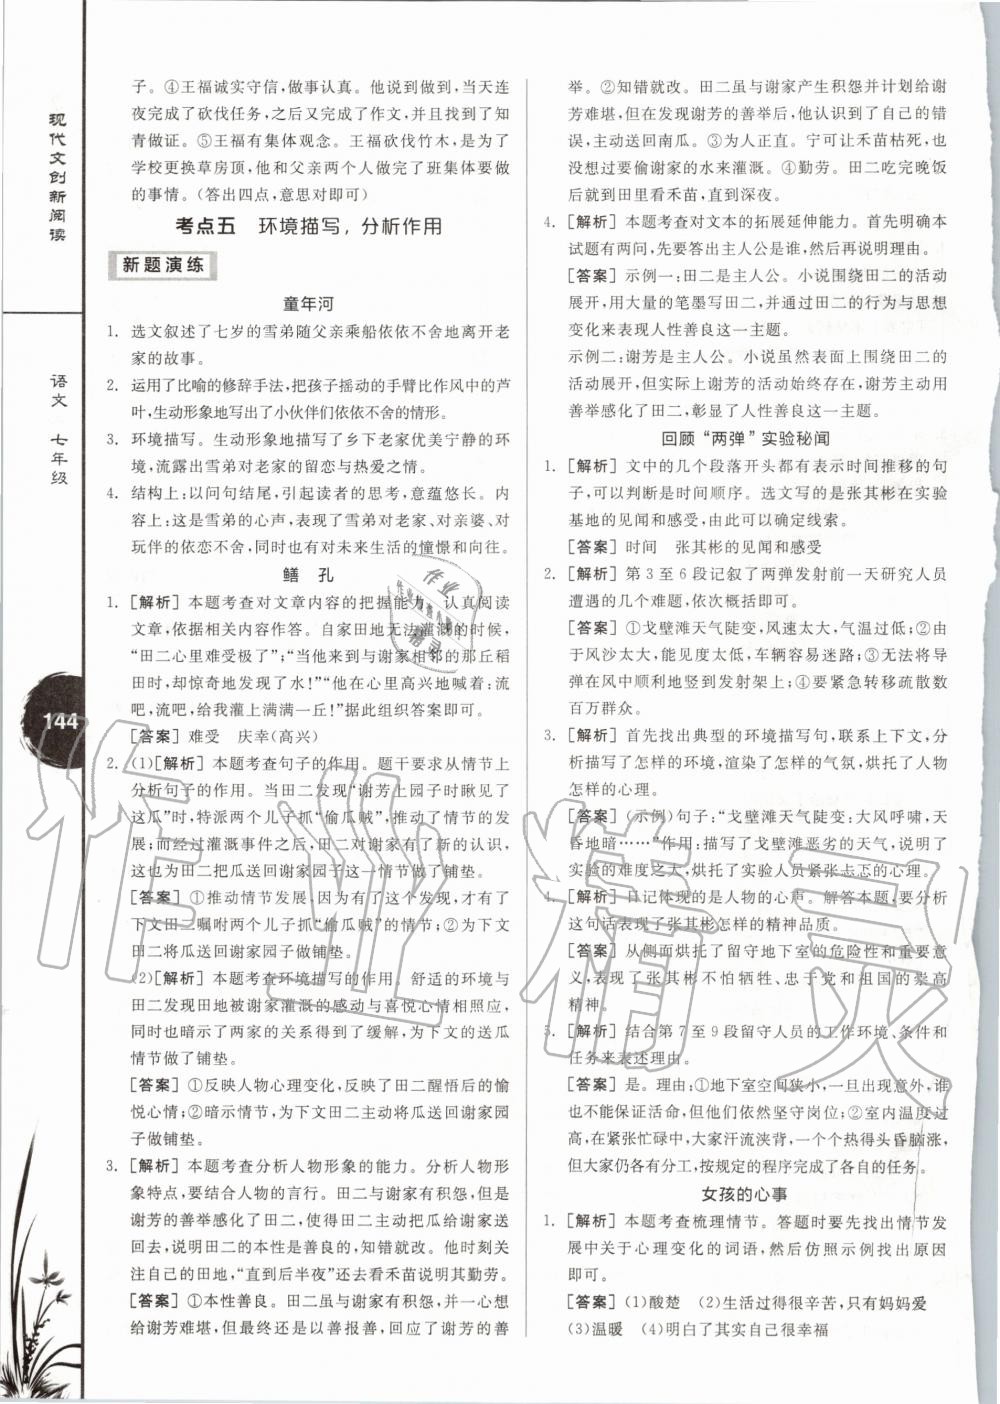 现代文创新阅读
语文 七年级
144
子。④王福诚实守信，做事认真。他说到做到，当天连
夜完成了砍伐任务，之后又完成了作文，并找到了知
青做证。⑤王福有集体观念。王福砍伐竹木，是为了
学校更换草房顶，他和父亲两个人做完了班集体要做
的事情。（答出四点，意思对即可）
考点五 环境描写，分析作用
新题演练
童年河
1. 选文叙述了七岁的雪弟随父亲乘船依依不舍地离开老
家的故事。
2. 运用了比喻的修辞手法，把孩子摇动的手臂比作风中的芦
叶，生动形象地写出了小伙伴们依依不舍的情形。
3. 环境描写。生动形象地描写了乡下老家优美宁静的环
境，流露出雪弟对老家的留恋与热爱之情。
4. 结构上：以问句结尾，引起读者的思考，意蕴悠长。内
容上：这是雪弟的心声，表现了雪弟对老家、对亲婆、对
玩伴的依恋不舍，同时也有对未来生活的憧憬和向往。
鳝 孔
1. [解析] 本题考查对文章内容的把握能力。认真阅读
文章，依据相关内容作答。自家田地无法灌溉的时候，
“田二心里难受极了”；“当他来到与谢家相邻的那丘稻
田时，却惊奇地发现了水！”“他在心里高兴地喊着：流
吧，流吧，给我灌上满满一丘！”据此组织答案即可。
[答案] 难受 庆幸（高兴）
2. (1)[解析] 本题考查句子的作用。题干要求从情节上
分析句子的作用。当田二发现“谢芳上园子时瞅见了
这瓜”时，特派两个儿子抓“偷瓜贼”，推动了情节的发
展；而经过灌溉事件之后，田二对谢家有了新的认识，
这也为田二把瓜送回谢家园子这一情节做了铺垫。
[答案] ①推动情节发展，因为有了这个发现，才有了
下文田二嘱咐两个儿子抓“偷瓜贼”的情节；②为下文
田二将瓜送回谢家园子做铺垫。
(2)[解析] 本题考查环境描写的作用。舒适的环境与
田二发现田地被谢家灌溉的感动与喜悦心情相照应，
同时也暗示了两家的关系得到了缓解，为下文的送瓜
情节做了铺垫。
[答案] ①反映人物心理变化，反映了田二醒悟后的愉
悦心情；②暗示情节，为下文田二主动将瓜送回谢家园
子做铺垫。
3. [解析] 本题考查分析人物形象的能力。分析人物形
象特点，要结合人物的言行。田二与谢家有积怨，但是
谢芳的善举感化了田二，使得田二主动把瓜给谢家送
回去，说明田二的本性是善良的，知错就改。他时刻关
注自己的田地，“直到后半夜”还去看禾苗可见其勤劳。
[答案] ①本性善良。田二虽与谢家有积怨，并计划
给谢芳难堪，但最终还是以善报善，回应了谢芳的善
举。②知错就改。田二虽与谢家产生积怨并计划给谢
芳难堪，但在发现谢芳的善举后，他认识到了自己的错
误，主动送回南瓜。③为人正直。宁可让禾苗枯死，也
没想过要偷谢家的水来灌溉。④勤劳。田二吃完晚饭
后就到田里看禾苗，直到深夜。
4. [解析] 本题考查对文本的拓展延伸能力。首先明确本
试题有两问，先要答出主人公是谁，然后再说明理由。
[答案] 示例一：田二是主人公。小说围绕田二的活动
展开，用大量的笔墨写田二，并通过田二的行为与思想
变化来表现人性善良这一主题。
示例二：谢芳是主人公。小说虽然表面上围绕田二的活
动展开，但实际上谢芳的活动始终存在，谢芳主动用
善举感化了田二，彰显了人性善良这一主题。
回顾“两弹”实验秘闻
1. [解析] 文中的几个段落开头都有表示时间推移的句
子，可以判断是时间顺序。选文写的是张其彬在实验
基地的见闻和感受，由此可以确定线索。
[答案] 时间 张其彬的见闻和感受
2. [解析] 第 3 至 6 段记叙了两弹发射前一天研究人员
遭遇的几个难题，依次概括即可。
[答案] ①戈壁滩天气陡变，风速太大，气温过低；②由
于风沙太大，能见度太低，车辆容易迷路；③无法将导
弹在风中顺利地竖到发射架上；④要紧急转移疏散数
百万群众。
3. [解析] 首先找出典型的环境描写句，联系上下文，分
析描写了怎样的环境，渲染了怎样的气氛，烘托了人物
怎样的心理。
[答案] （示例）句子：“戈壁滩天气陡变：大风呼啸，天
昏地暗……”作用：描写了戈壁滩恶劣的天气，说明了
实验的难度之大，烘托了实验人员紧张忐忑的心理。
4. [解析] 日记体现的是人物的心声。解答本题，要分析
这句话表现了张其彬怎样的精神品质。
[答案] 从侧面烘托了留守地下室的危险性和重要
意义，表现了张其彬不怕牺牲、忠于党和祖国的崇高
精神。
5. [解析] 结合第 7 至 9 段留守人员的工作环境、条件和
任务来表述理由。
[答案] 是。理由：①地下室空间狭小，一旦出现意外，谁
也不能保证活命，但他们依然坚守岗位；②室内温度过
高，在紧张忙碌中，大家汗流浃背，一个个热得头昏脑涨，
但大家仍各有分工，按规定的程序完成了各自的任务。
女孩的心事
1. [解析] 本题考查梳理情节。答题时要先找出情节发
展中关于心理变化的词语，然后仿照示例找出原因
即可。
[答案] (1)酸楚 (2)生活过得很辛苦，只有妈妈爱
(3)温暖 (4)明白了其实自己很幸福
作业精灵
作业
精灵